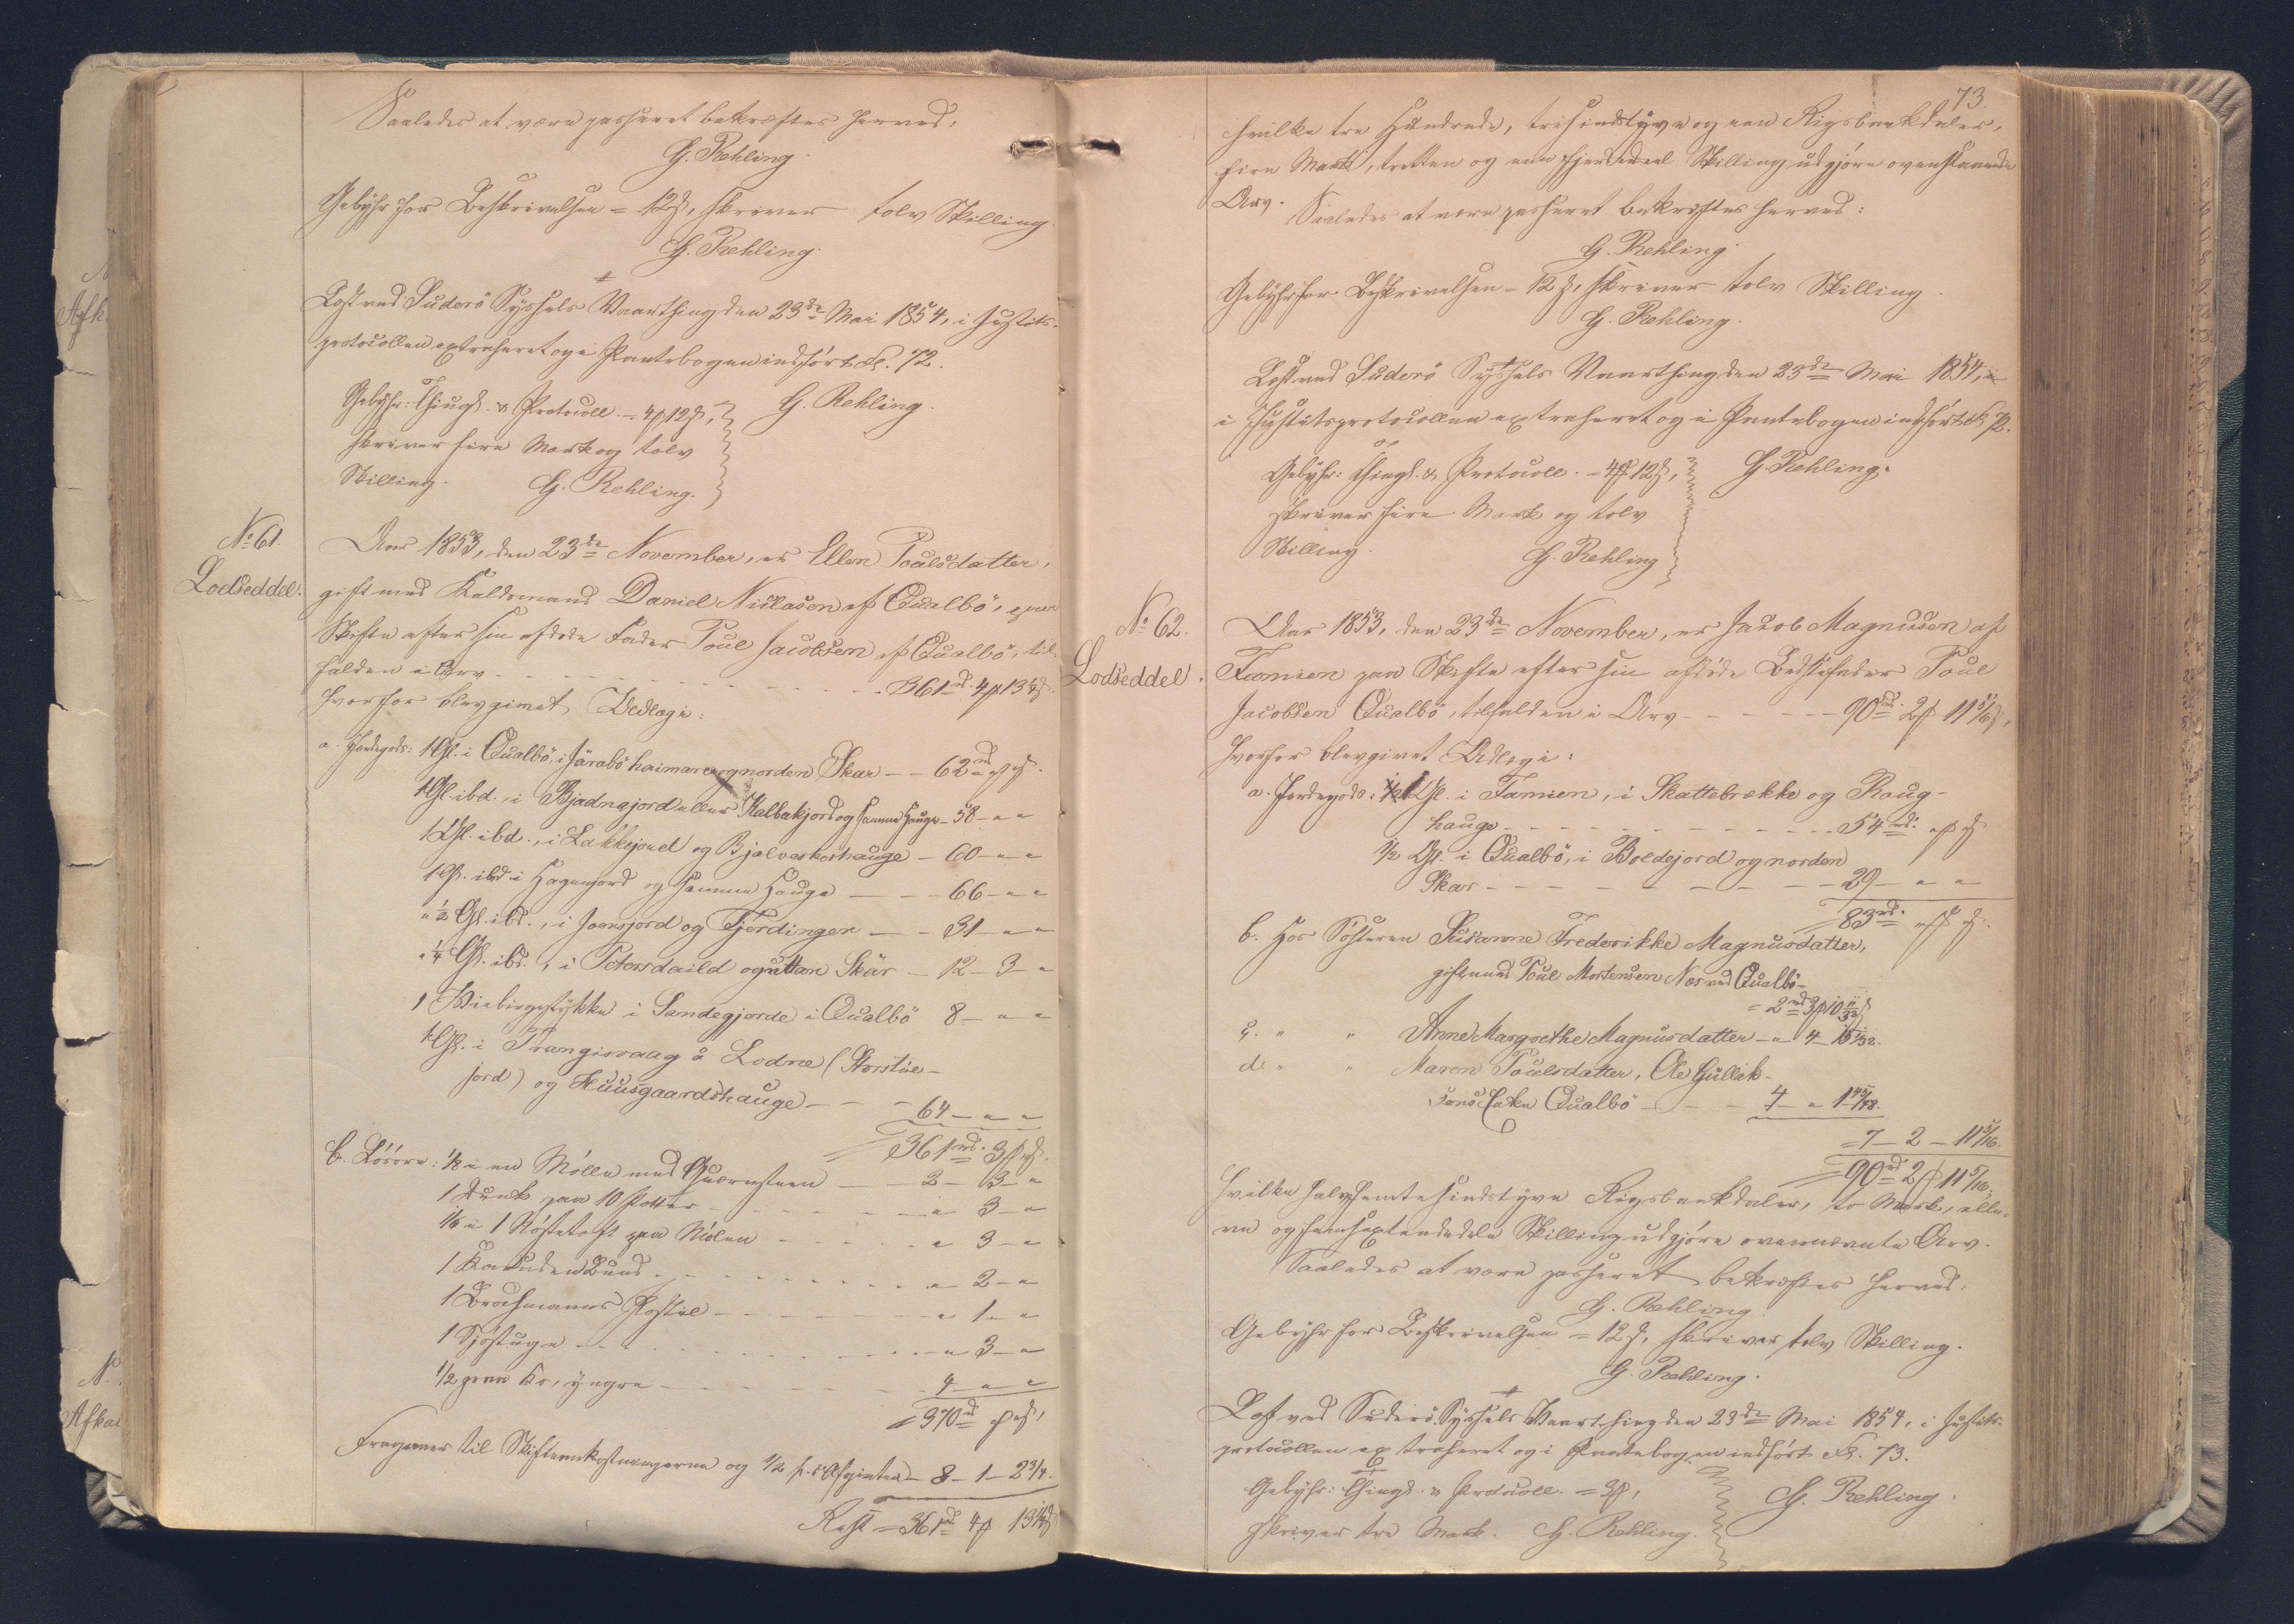 Saaledes at være passeret bekræftes herved.
G. Røhling.
Gebyhr for Beskrivelsen = 12 s, skriver tolv Skilling.
G. Røhling.
Læst ved Suderö Syssels Vaarthing den 23de Mai 1854, i Justits-
protocollen extraheret og i Pantebogen indfört Fol. 72.
Gebyhr: Thingl. & Protocoll. = 4 mk 12 s,
G. Røhling.
skriver fire Mark og tolv
Skilling.
G. Røhling.
No 61.
Lodseddel.
Aar 1853, den 23de November, er Ellen Poulsdatter,
gift med Kaldsmand Daniel Niclasen af Qualbö, paa
Skifte efter sin afdöde Fader Poul Jacobsen af Qualbö, til-
falden i Arv - - - 361 rd. 4 mk 13 1/4 s.
hvorfor blev givet Udlæg i:
a. Jordegods: 1 Gl. i Qualbö, i Járabö haimare og norden Skar - - 62 rd " mk " s.
1 Gl. ibd., i Bjadnajord eller Kalbakjord og samme Hauge - 58 - " "
1 Gl. ibd., i Lakkejord og Bjalveskorhauge - 60 - " "
1 Gl. ibd. i Hagenjord og samme Hauge - - - 66 - " "
" 1/2 Gl. ibd., i Joensjord og Fjerdingen - - 31 - " "
" 1/4 Gl. ibd., i Petersdaild og uttan Skär - 12 - 3 - "
1 Biebirgstykke i Sandegjorde i Qualbö 8 - " "
1 Gl. i Trangisvaag å Lodne (Norstue-
jord) og Huusgaardshauge - - - 64 - " "
= 361 rd. 3 mk " s.
b. Lösöre: 1/8 i en Mölle med Quærnsteen - - 2 - 3 - "
1 Dunk paa 10 Potter - - - " 3 - "
1/6 i 1 Röstetoft paa Mölen - - - " 3 - "
1 Bund - - - " 2 - "
1 Brochmanns Postil - - - " 1 - "
1 - - - " 3 - "
1/2 Ko, yngre - - - 4 - " "
= 370 rd " mk " s,
Fragaaer til Skifteomkostningerne og 1/2 pr. Ct Afgiften - 8 - 1 - 2 3/4.
Rest = 361 rd 4 mk 13 1/4 s
73.
hvilke tre Hundrede, tresindstyve og een Rigsbankdaler,
fire Mark, tretten og een fjerdedeel Skilling udgjöre ovenstaaende
Arv.
Saaledes at være passeret bekræftes herved:
G. Røhling.
Gebyhr for Beskrivelsen = 12 s, skriver tolv Skilling.
G. Røhling.
Læst ved Suderö Syssels Vaarthing den 23de Mai 1854, i
i Justitsprotocollen extraheret og i Pantebogen indfört Fol. 72.
Gebyhr: Thingl. & Protocoll. = 4 mk 12 s,
G. Røhling.
skriver fire Mark og tolv
Skilling.
G. Røhling
No 62.
Lodseddel.
Aar 1853, den 23de November, er Jacob Magnusen af
Famien paa Skifte efter sin afdöde Bedstefader Poul
Jacobsen Qualbö, tilfalden i Arv - - - 90 rd. 2 mk 11 5/16 s,
hvorfor blev givet Udlæg i:
a. Jordegods: 1 Gl. i Famien, i Skattebrekke og Roug-
hauge - - - 54 rd. " mk " s
1/2 Gl. i Qualbö, i Boldejord og norden
Skar - - - 29 - " "
= 83 rd. " mk " s.
b. Hos Sösteren Susanne Frederikke Magnusdatter,
gift med Poul Mortensen Næs ved Qualbö -
= 2 rd 3 mk 10 11/32 s
c. " " Anne Margrethe Magnusdatter - " 4 - 15 1/32.
d. " " Maren Poulsdatter, Ole Gullik-
sens Enke Qualbö - - - 4 - " 1 45/48.
= 7 - 2 - 11 5/16.
= 90 rd 2 mk 11 5/16,
hvilke halvfemtesindstyve Rigsbankdaler, to Mark, elle-
ve og fem sextendedele Skilling udgjöre ovennævnte Arv.
Saaledes at være passeret bekræftes herved:
G. Røhling
Gebyhr for Beskrivelsen = 12 s, skriver tolv Skilling.
G. Røhling.
Læst ved Suderö Syssels Vaarthing den 23de Mai 1854, i Justits-
protocollen extraheret og i Pantebogen indfört Fol. 73.
Gebyhr: Thingl. & Protocoll. = 3 mk,
G. Røhling.
skriver tre Mark. G. Røhling.